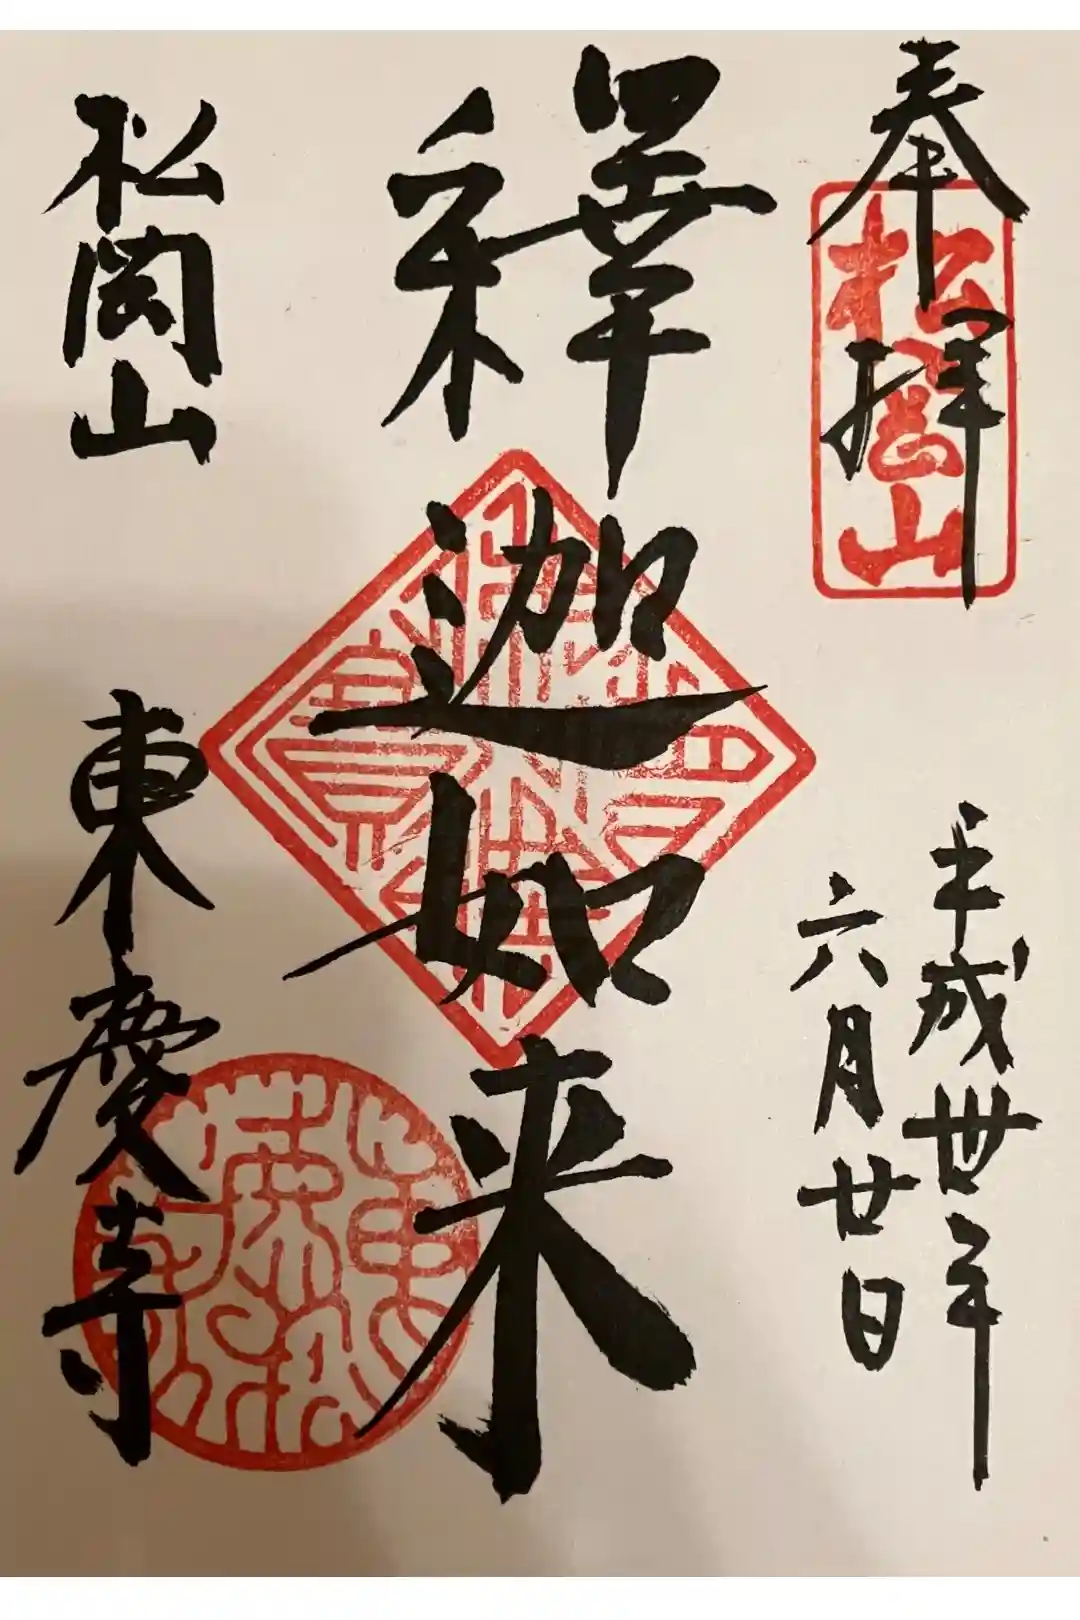 奉拝
松岡山
平成丗年
六月廿日
釋迦如来
松岡山
東慶寺